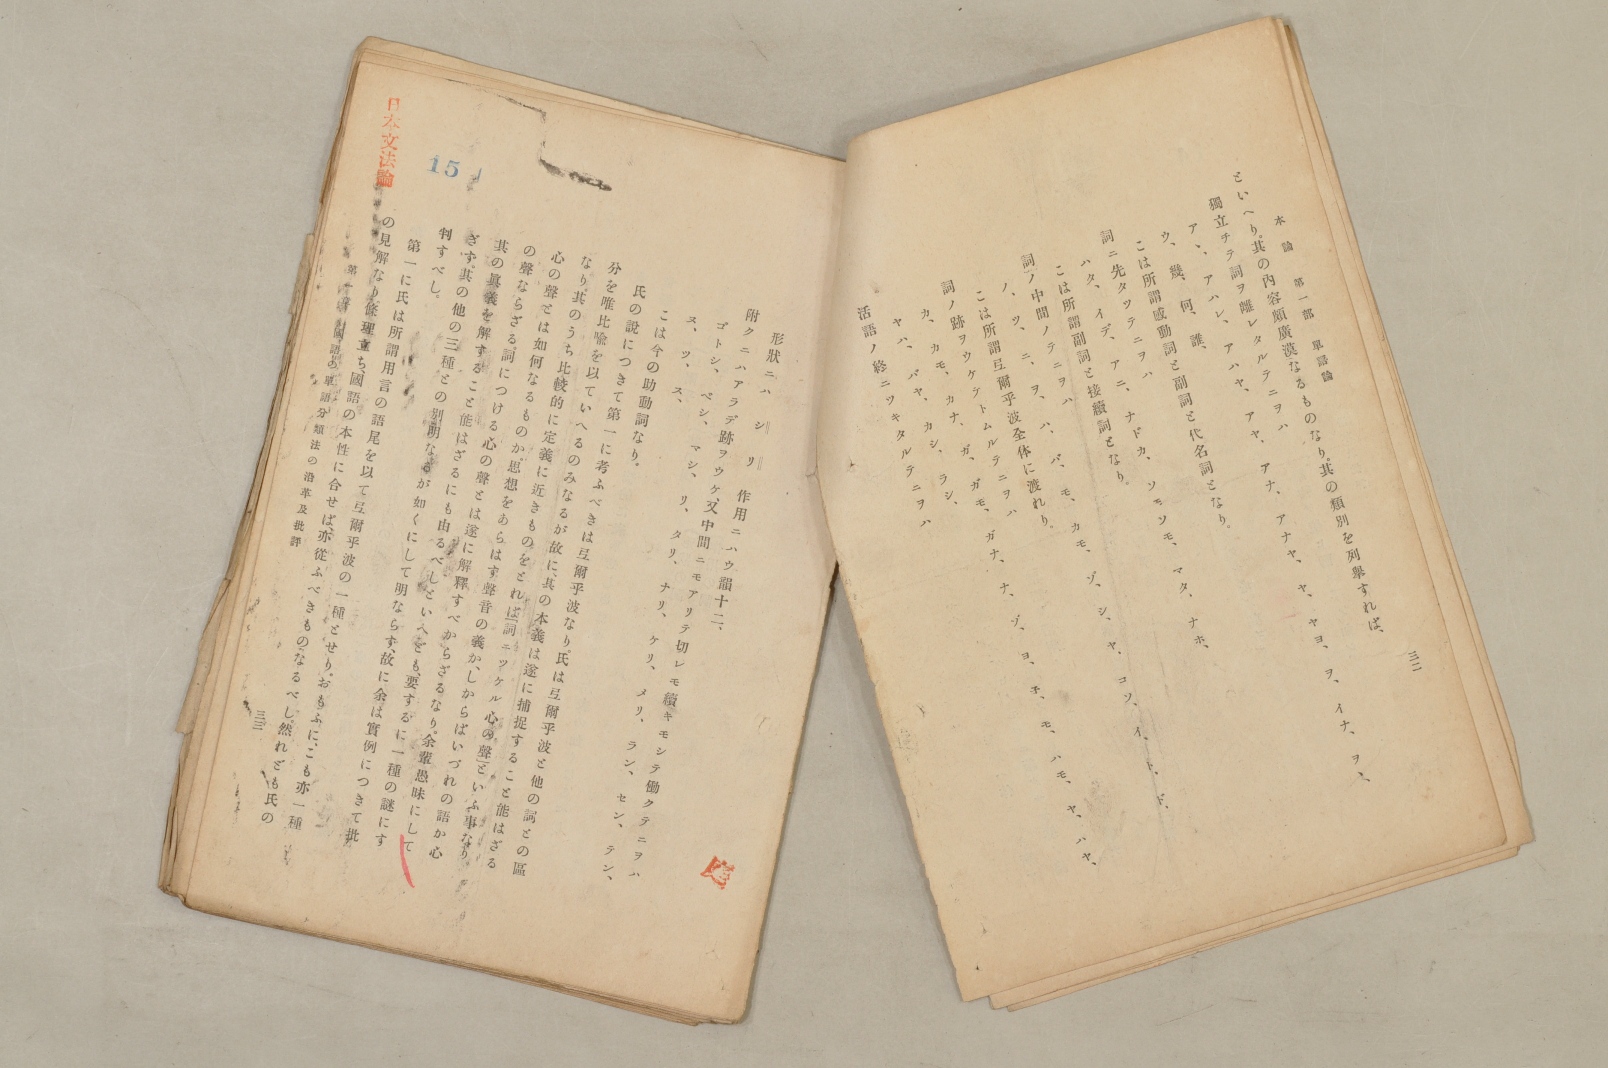 本論　第一部　單語論
三二
といへり。其の内容頗廣漠なるものなり。其の類別を列擧すれば、
獨立チラ詞ヲ離レタルテニヲハ
ア、アハレ、アハヤ、アヤ、アナ、アナヤ、ヤ、ヤヨ、ヲ、イナ、ヲヽ、
ウ、幾、何、誰、
こは所謂感動詞と副詞と代名詞となり。
詞ニ先タツテニヲハ
ハタ、イデ、アニ、ナドカ、ソモソモ、マタ、ナホ、
こは所謂副詞と接續詞となり。
詞ノ中間ノテニヲハ
ハ、バ、モ、カモ、ゾ、シ、ヤ、コソ、イ、ト、ド、
ノ、ツ、ニ、ヲ、
こは所謂弖爾乎波全体に渡れり。
詞ノ跡ヲウケテトムルテニヲハ
カ、カモ、カナ、ガ、ガモ、ガナ、ナ、ゾ、ヨ、
モ、ハモ、ヤ、ハヤ、
ヤハ、バヤ、カシ、ラシ、
活語ノ終ニツキタルテニヲハ
形狀ニハ　シ　リ　作用ニハウ韻十二、
附クニハアラデ跡ヲウケ又中間ニモアリテ切レモ續キモシテ働クテニヲハ
ゴトシ、ベシ、マシ、リ、タリ、ナリ、ケリ、メリ、ラン、セン、テン、
ヌ、ツ、ス、
こは今の助動詞なり。
氏の説につきて第一に考ふべきは弖爾乎波なり。氏は弖爾乎波と他の詞との區
分を唯比喩を以ていへるのみなるが故に、其の本義は遂に捕捉すること能はざる
なり。其のうち比較的に定義に近きものをとれば「詞ニツケル心の聲」といふ事なり。
心の聲とは如何なるものか、思想をあらはす聲音の義か、しからばいづれの語か心
の聲ならざる、詞につける心の聲とは遂に解釋すべからざるなり。余輩愚昧にして
其の眞義を解すること能はざるにも由るべしといへども、要するに一種の謎にす
ぎず。其の他の三種との別明なるが如くにして明ならず、故に余は實例につきて批
判すべし。
第一に氏は所謂用言の語尾を以て弖爾乎波の一種とせり。おもふに、こも亦一種
の見解なり。條理立ち國語の本性に合せば、亦從ふべきものなるべし。然れども氏の
第一章　國語の單語分類法の沿革及批評
三三
日本文法論
15